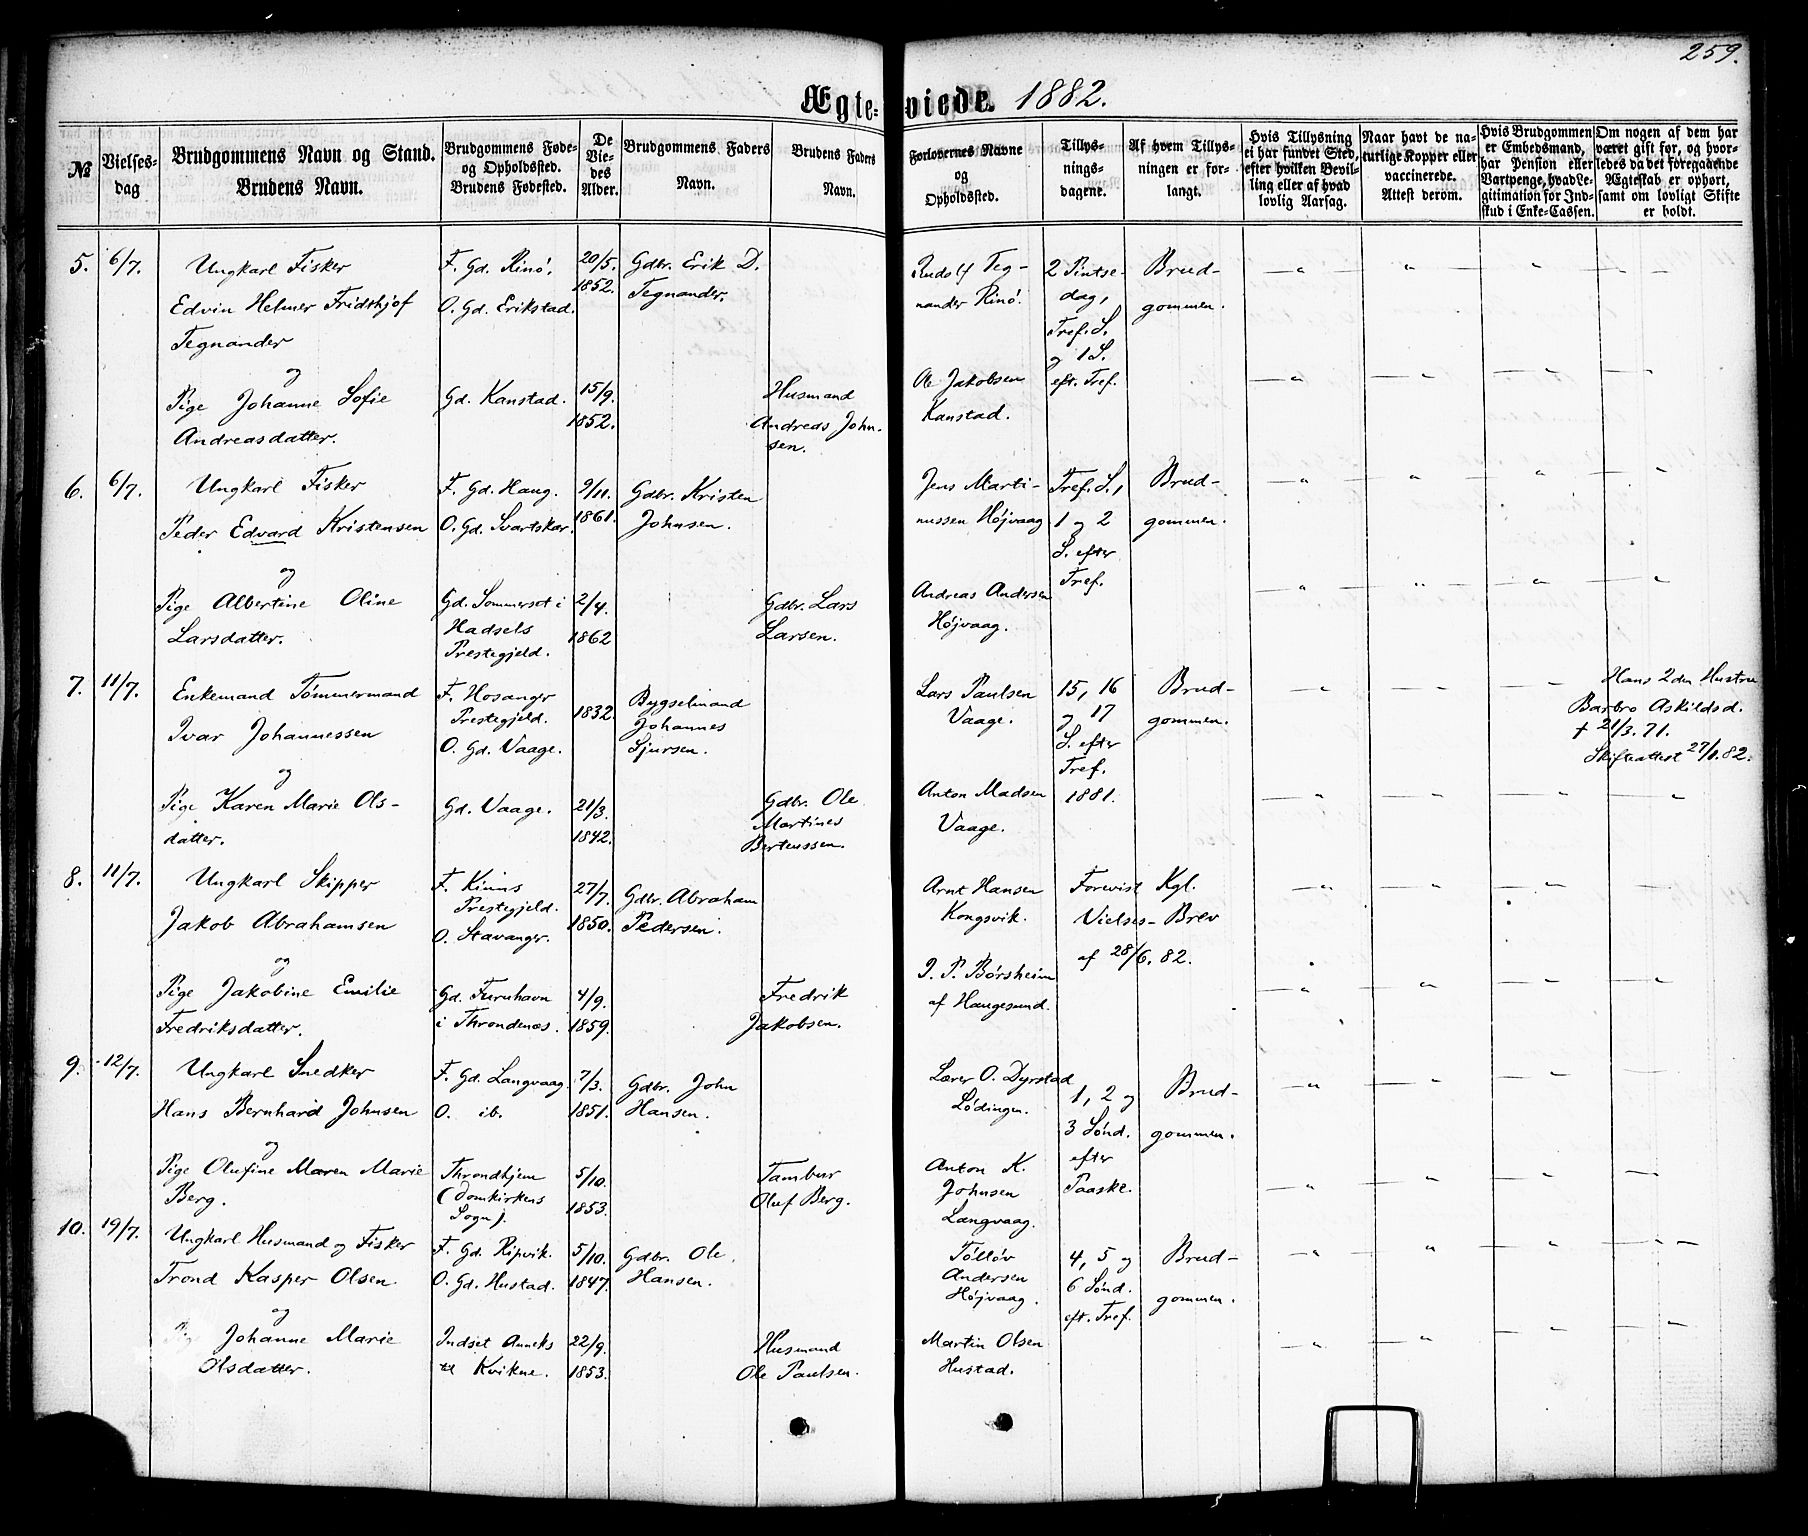 259.
Ægteviede. 1882.
№
Vielses-
dag
Brudgommens Navn og Stand.
Brudens Navn.
Brudgommens Føde-
og Opholdssted.
Brudens Fødested.
De
Vie-
des
Alder.
Brudgommens Faders
Navn.
Brudens Faders
Navn.
Forlovernes Navne
og
Opholdssted.
Tillys-
nings-
dagene.
Af hvem Tillys-
ningen er for-
langt.
Hvis Tillysning
ei har fundet Sted,
efter hvilken Bevil-
ling eller af hvad
lovlig Aarsag.
Naar havt de na-
turlige Kopper eller
vaccinerede.
Attest derom.
Hvis Brudgommen
er Embedsmand,
har Pension eller
Vartpenge, hvad Le-
gitimation for Ind-
skud i Enke-Cassen.
Om nogen af dem har
været gift før, og hvor-
ledes da det foregaaende
Ægteskab er ophørt,
samt om lovligt Skifte
er holdt.
5. 6/7.
Ungkarl Fisker
Edvin Helmer Fridthjof
Tegnander
og
Pige Johanne Sofie
Andreasdatter.
F. Gd. Rinö.
O. Gd. Erikstad.
Gd. Kanstad.
20/5.
1852.
15/9.
1852.
Gdbr. Erik D.
Tegnander.
Husmand
Andreas John-
sen.
Rudolf Teg-
nander Rinö.
Ole Jakobsen
Kanstad.
2 Pintse-
dag,
Tref. S.
og 1 S.
eft. Tref.
Brud-
gommen.
6. 6/7.
Ungkarl Fisker
Peder Edvard Kristensen
og
Pige Albertine Oline
Larsdatter.
F. Gd. Haug.
O. Gd. Svartskar.
Gd. Sommerset i
Hadsels
Prestegjeld.
9/11.
1861.
2/4.
1862
Gdbr. Kristen
Johnsen.
Gdbr. Lars
Larsen.
Jens Marti-
nussen Höjvaag
Andreas Andersen
Höjvaag.
Tref. S.,
1 og 2
S. efter
Tref.
Brud-
gommen.
7. 11/7.
Enkemand Tömmermand
Ivar Johannessen
og
Pige Karen Marie Ols-
datter.
F. Hosanger
Prestegjeld.
O. Gd. Vaage.
Gd. Vaage.
1832.
21/3.
1842.
Bygselmand
Johannes
Sjursen.
Gdbr. Ole
Martines
Berteussen.
Lars Paulsen
Vaage.
Anton Madsen
Vaage.
15, 16
og 17
S. efter
Tref.
1881.
Brud-
gommen.
Hans 2den Hustru
Barbro Askildsd.
† 21/3. 71.
Skifteattest 27/1. 82.
8. 11/7.
Ungkarl Skipper
Jakob Abrahamsen
og
Pige Jakobine Emilie
Fredriksdatter.
F. Kinns
Prestegjeld.
O. Stavanger.
Gd. Furuhavn
i Throndenæs.
27/7.
1850.
4/9.
1859.
Gdbr. Abraham
Pedersen.
Fredrik
Jakobsen.
Arnt Hansen
Kongsvik.
P. Börsheim
af Haugesund.
Forevist Kgl.
Vielses-Brev
af 28/6. 82.
9. 12/7.
Ungkarl Snedker
Hans Bernhard Johnsen
og
Pige Olufine Maren Marie
Berg.
F. Gd. Langvaag.
O. ib.
Throndhjem
(Domkirkens
Sogn).
7/3.
1851.
5/10.
1853.
Gdbr. John
Hansen.
Tambur
Oluf Berg.
Lærer O. Dyrstad
Lödingen.
Anton K.
Johnsen
Langvaag.
1, 2 og
3 Sönd.
efter
Paaske.
Brud-
gommen.
10. 19/7.
Ungkarl Husmand og Fisker
Trond Kasper Olsen.
og
Pige Johanne Marie
Olsdatter.
F. Gd. Ripvik.
O. Gd. Hustad.
Indset Anneks
til Kvikne.
5/10.
1847.
22/9.
1853.
Gdbr. Ole
Hansen.
Husmand
Ole Paulsen.
Tölløv
Andersen
Höjvaag.
Martin Olsen
Hustad.
4, 5 og
6 Sönd.
eft. Tref.
Brud-
gommen.